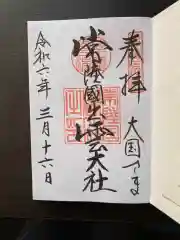 奉拝
大国つま
常陸國出雲大社
令和六年
三月十六日